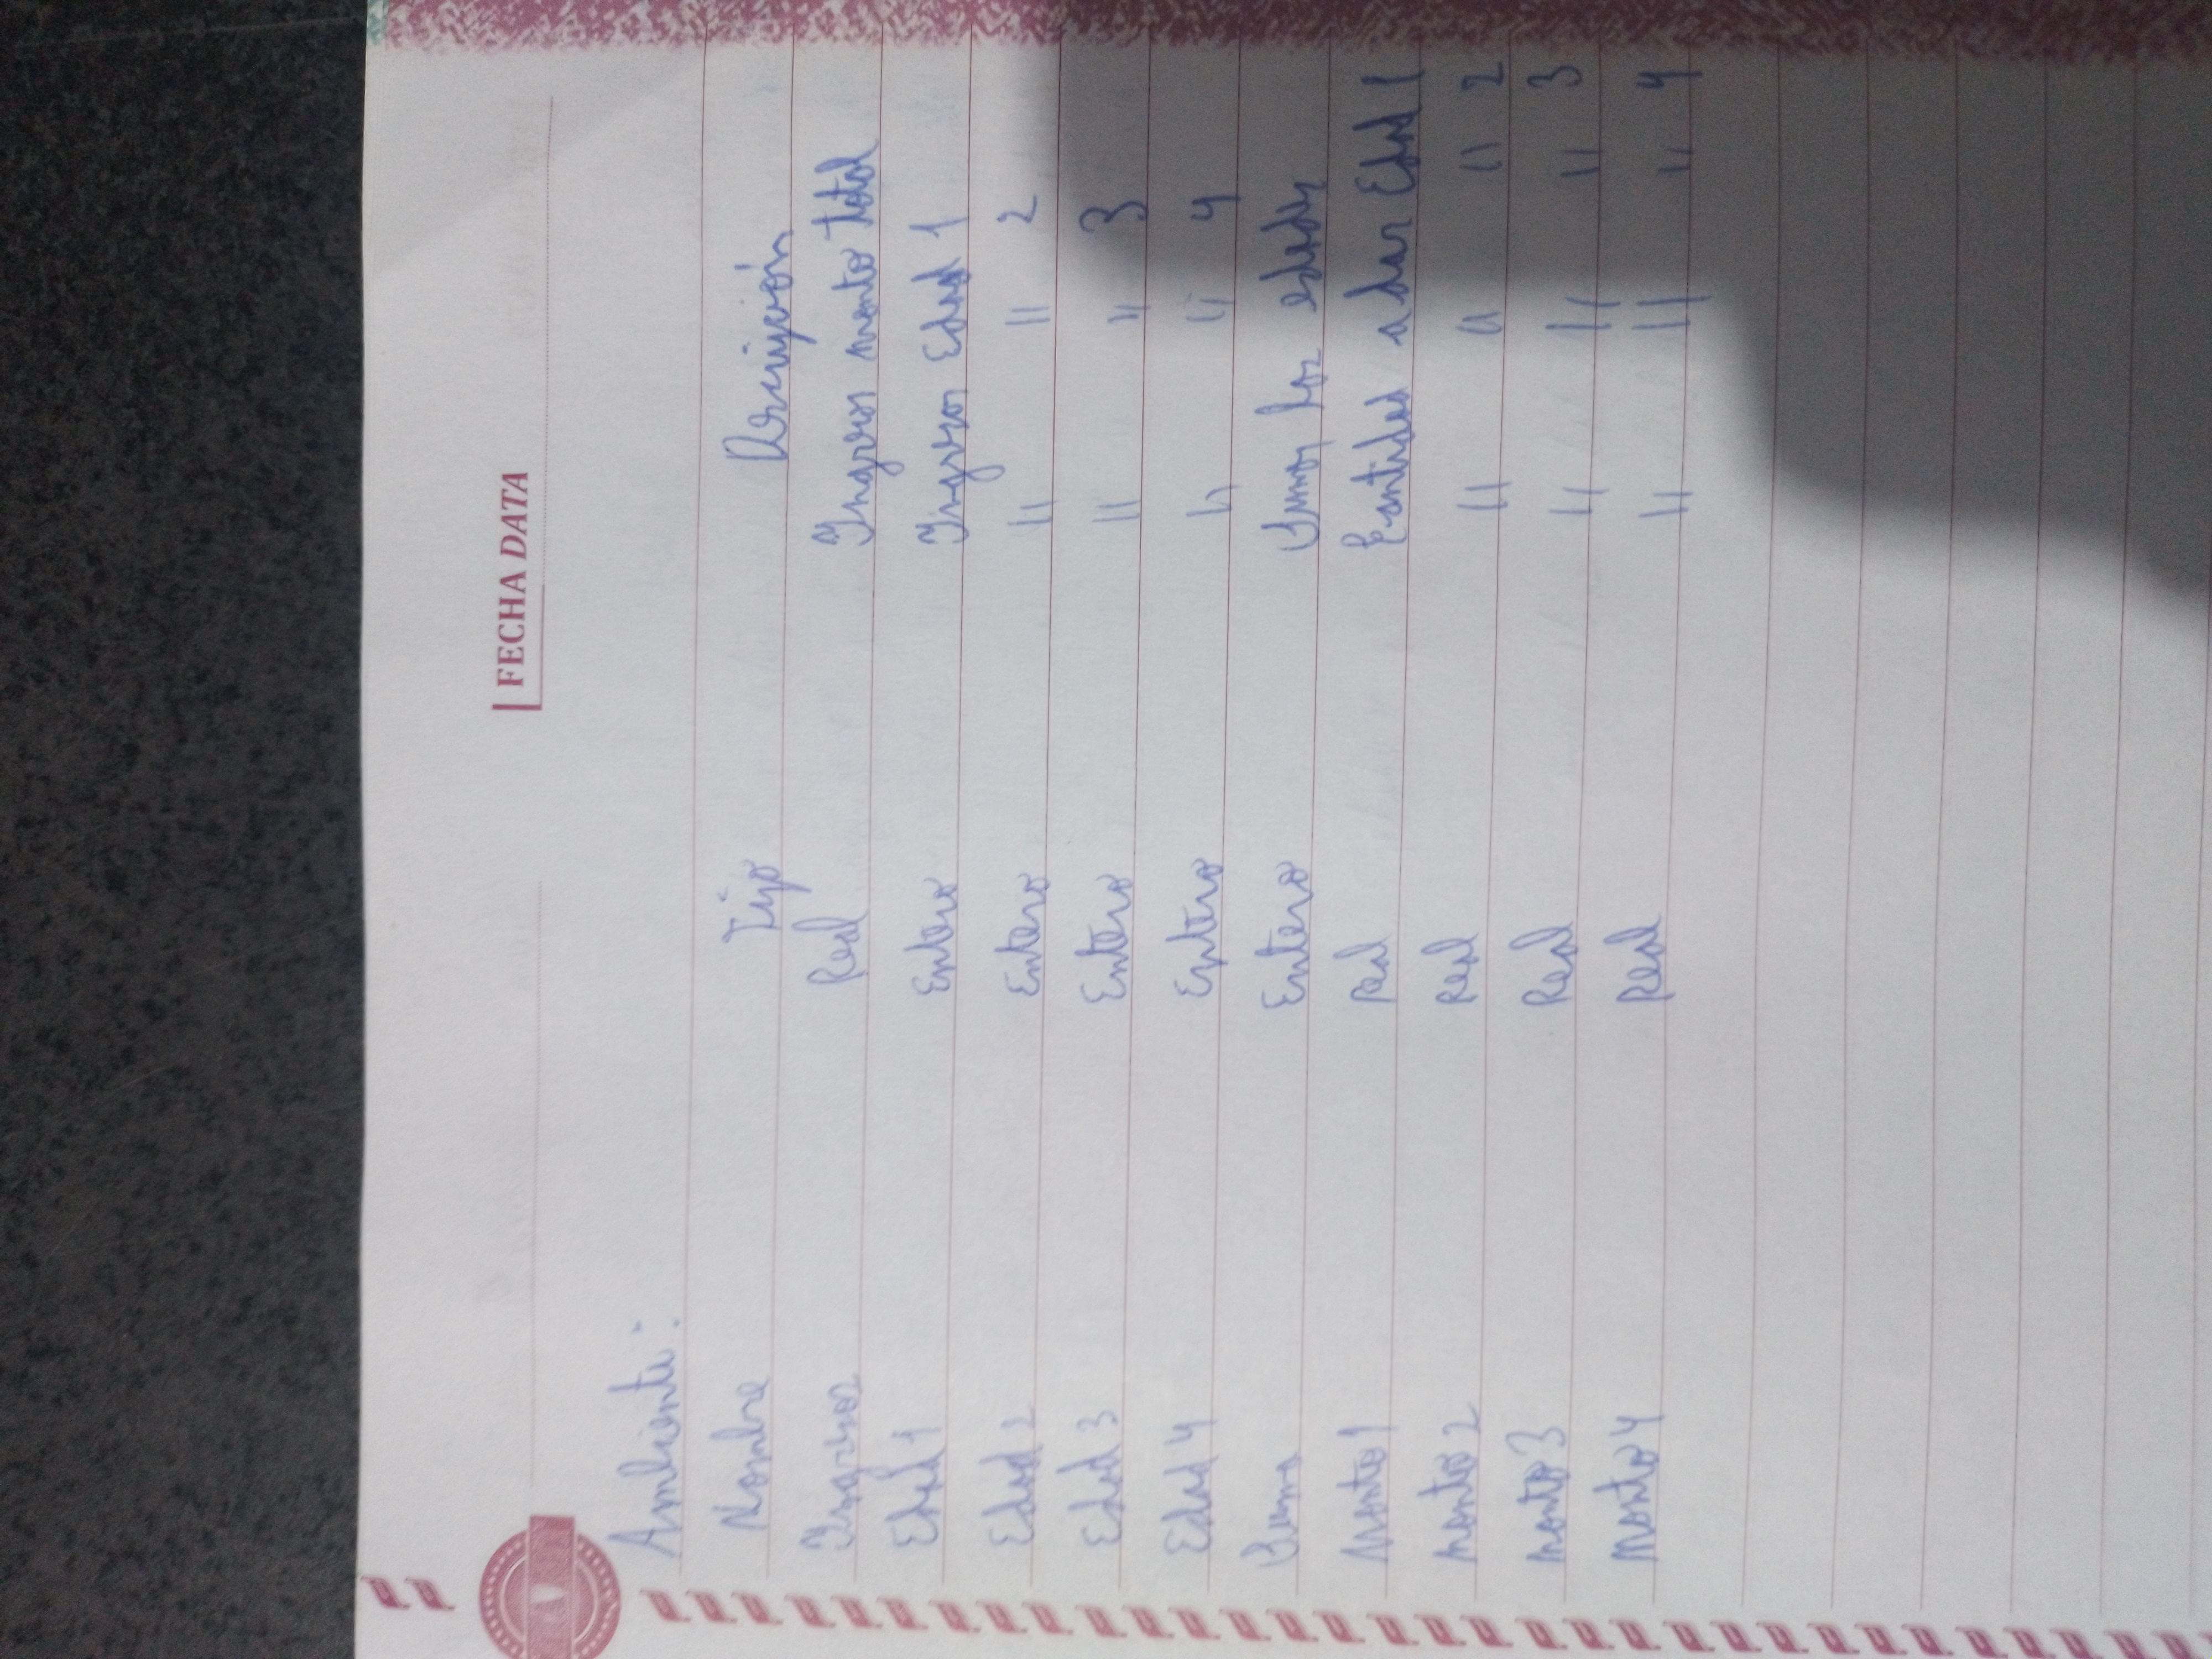 FECHA DATA
Ambiente:
Nombre Tipo Descripción
Ingresos Real Ingresos monto total
Edad 1 Entero Ingresos Edad 1
Edad 2 Entero " " 2
Edad 3 Entero " " 3
Edad 4 Entero " " 4
Suma Entero Sumar las edades
Monto 1 Real Cantidad a dar Edad 1
Monto 2 Real " " " 2
Monto 3 Real " " " 3
Monto 4 Real " " " 4